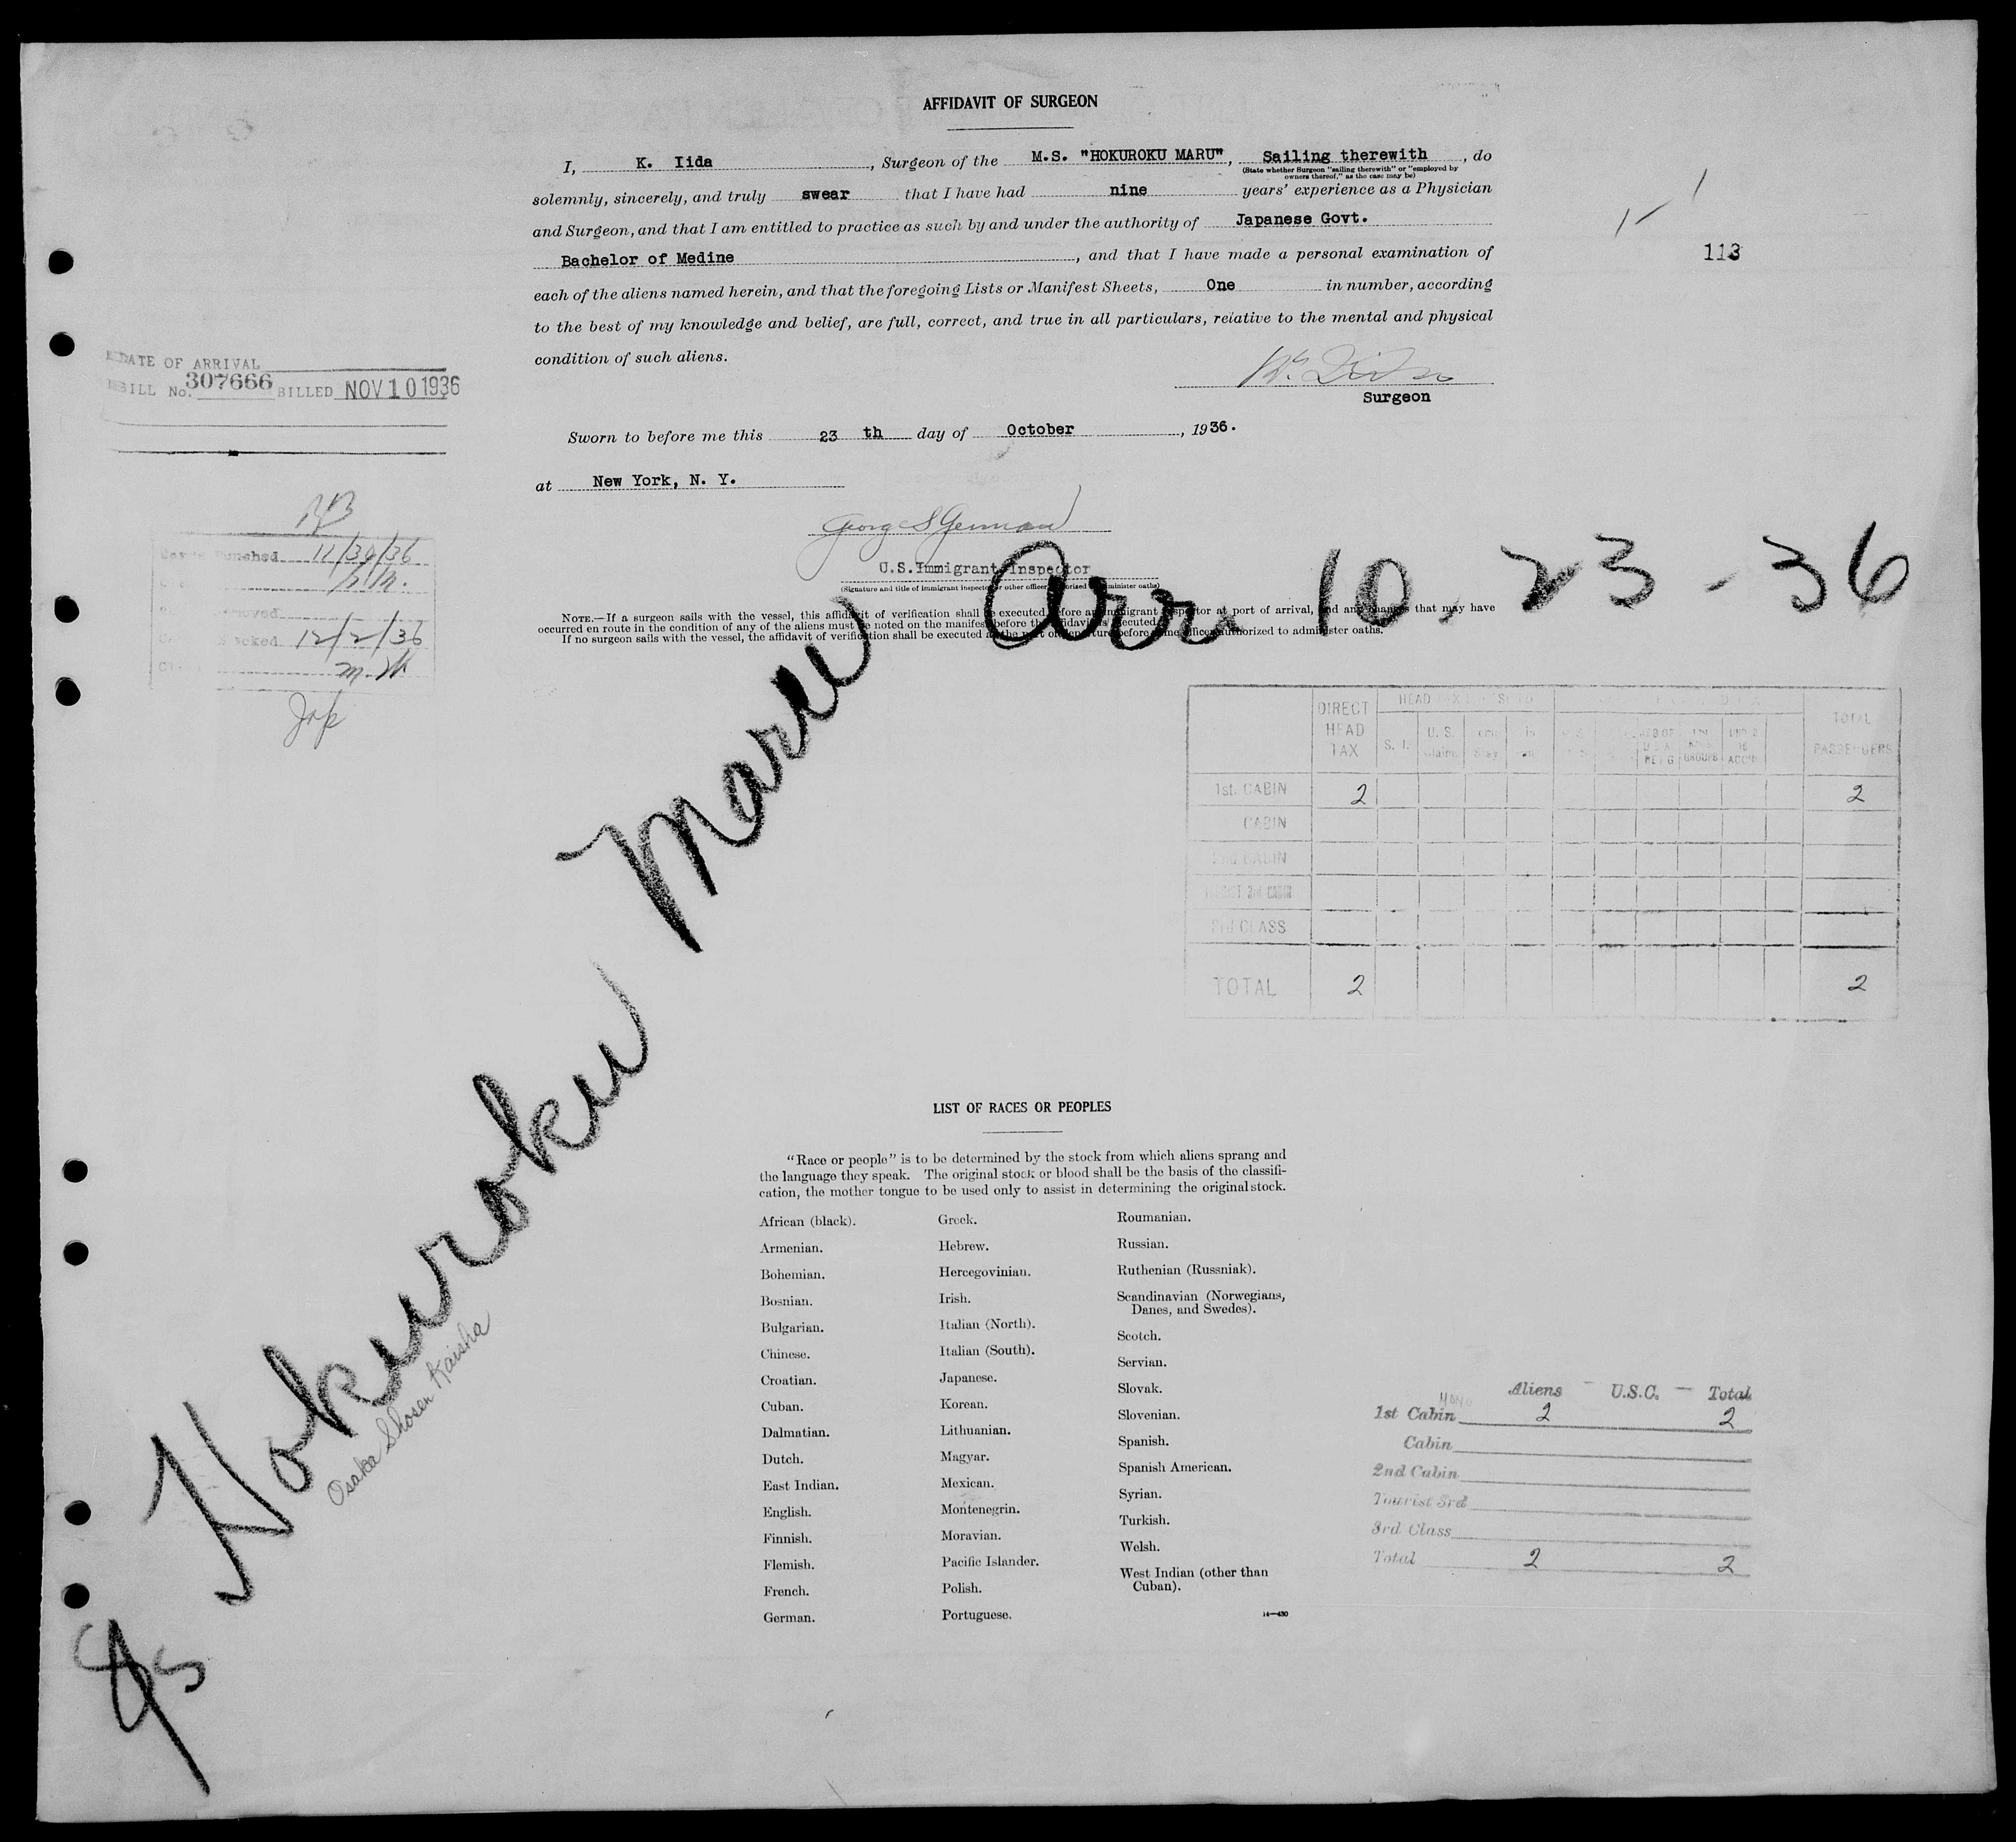 AFFIDAVIT OF SURGEON
I, K. Iida, Surgeon of the M.S. "HOKUROKU MARU", Sailing therewith, do
(State whether Surgeon "sailing therewith" or "employed by
owners thereof," as the case may be)
solemnly, sincerely, and truly swear that I have had nine years' experience as a Physician
and Surgeon, and that I am entitled to practice as such by and under the authority of Japanese Govt.
Bachelor of Medine, and that I have made a personal examination of
each of the aliens named herein, and that the foregoing Lists or Manifest Sheets, One in number, according
to the best of my knowledge and belief, are full, correct, and true in all particulars, relative to the mental and physical
condition of such aliens.
K. Iida
Surgeon
113
DATE OF ARRIVAL
BILL No. 307666 BILLED NOV 10 1936
Sworn to before me this 23 th day of October, 1936.
at New York, N. Y.
George S German
U.S. Immigrant Inspector
(Signature and title of immigrant inspector or other officer authorized to administer oaths)
Punched 11/30/36
12/2/36
M.W.
Arr. 10, 23 - 36
NOTE.—If a surgeon sails with the vessel, this affidavit of verification shall be executed before an immigrant inspector at port of arrival, and any change that may have
occurred en route in the condition of any of the aliens must be noted on the manifest before the affidavit is executed.
If no surgeon sails with the vessel, the affidavit of verification shall be executed at the port of departure before some officer authorized to administer oaths.
Hokuroku Maru
Osaka Shosen Kaisha
DIRECT HEAD TAX
S. I.
U. S.
GROUPS
TOTAL PASSENGERS
1st. CABIN 2 2
CABIN
2nd CABIN
TOURIST 3rd CABIN
3rd CLASS
TOTAL 2 2
LIST OF RACES OR PEOPLES
"Race or people" is to be determined by the stock from which aliens sprang and
the language they speak. The original stock or blood shall be the basis of the classifi-
cation, the mother tongue to be used only to assist in determining the original stock.
African (black).
Armenian.
Bohemian.
Bosnian.
Bulgarian.
Chinese.
Croatian.
Cuban.
Dalmatian.
Dutch.
East Indian.
English.
Finnish.
Flemish.
French.
German.
Greek.
Hebrew.
Hercegovinian.
Irish.
Italian (North).
Italian (South).
Japanese.
Korean.
Lithuanian.
Magyar.
Mexican.
Montenegrin.
Moravian.
Pacific Islander.
Polish.
Portuguese.
Roumanian.
Russian.
Ruthenian (Russniak).
Scandinavian (Norwegians,
Danes, and Swedes).
Scotch.
Servian.
Slovak.
Slovenian.
Spanish.
Spanish American.
Syrian.
Turkish.
Welsh.
West Indian (other than
Cuban).
14—430
Aliens — U.S.C. — Total
1st Cabin 2 2
Cabin
2nd Cabin
Tourist 3rd
3rd Class
Total 2 2